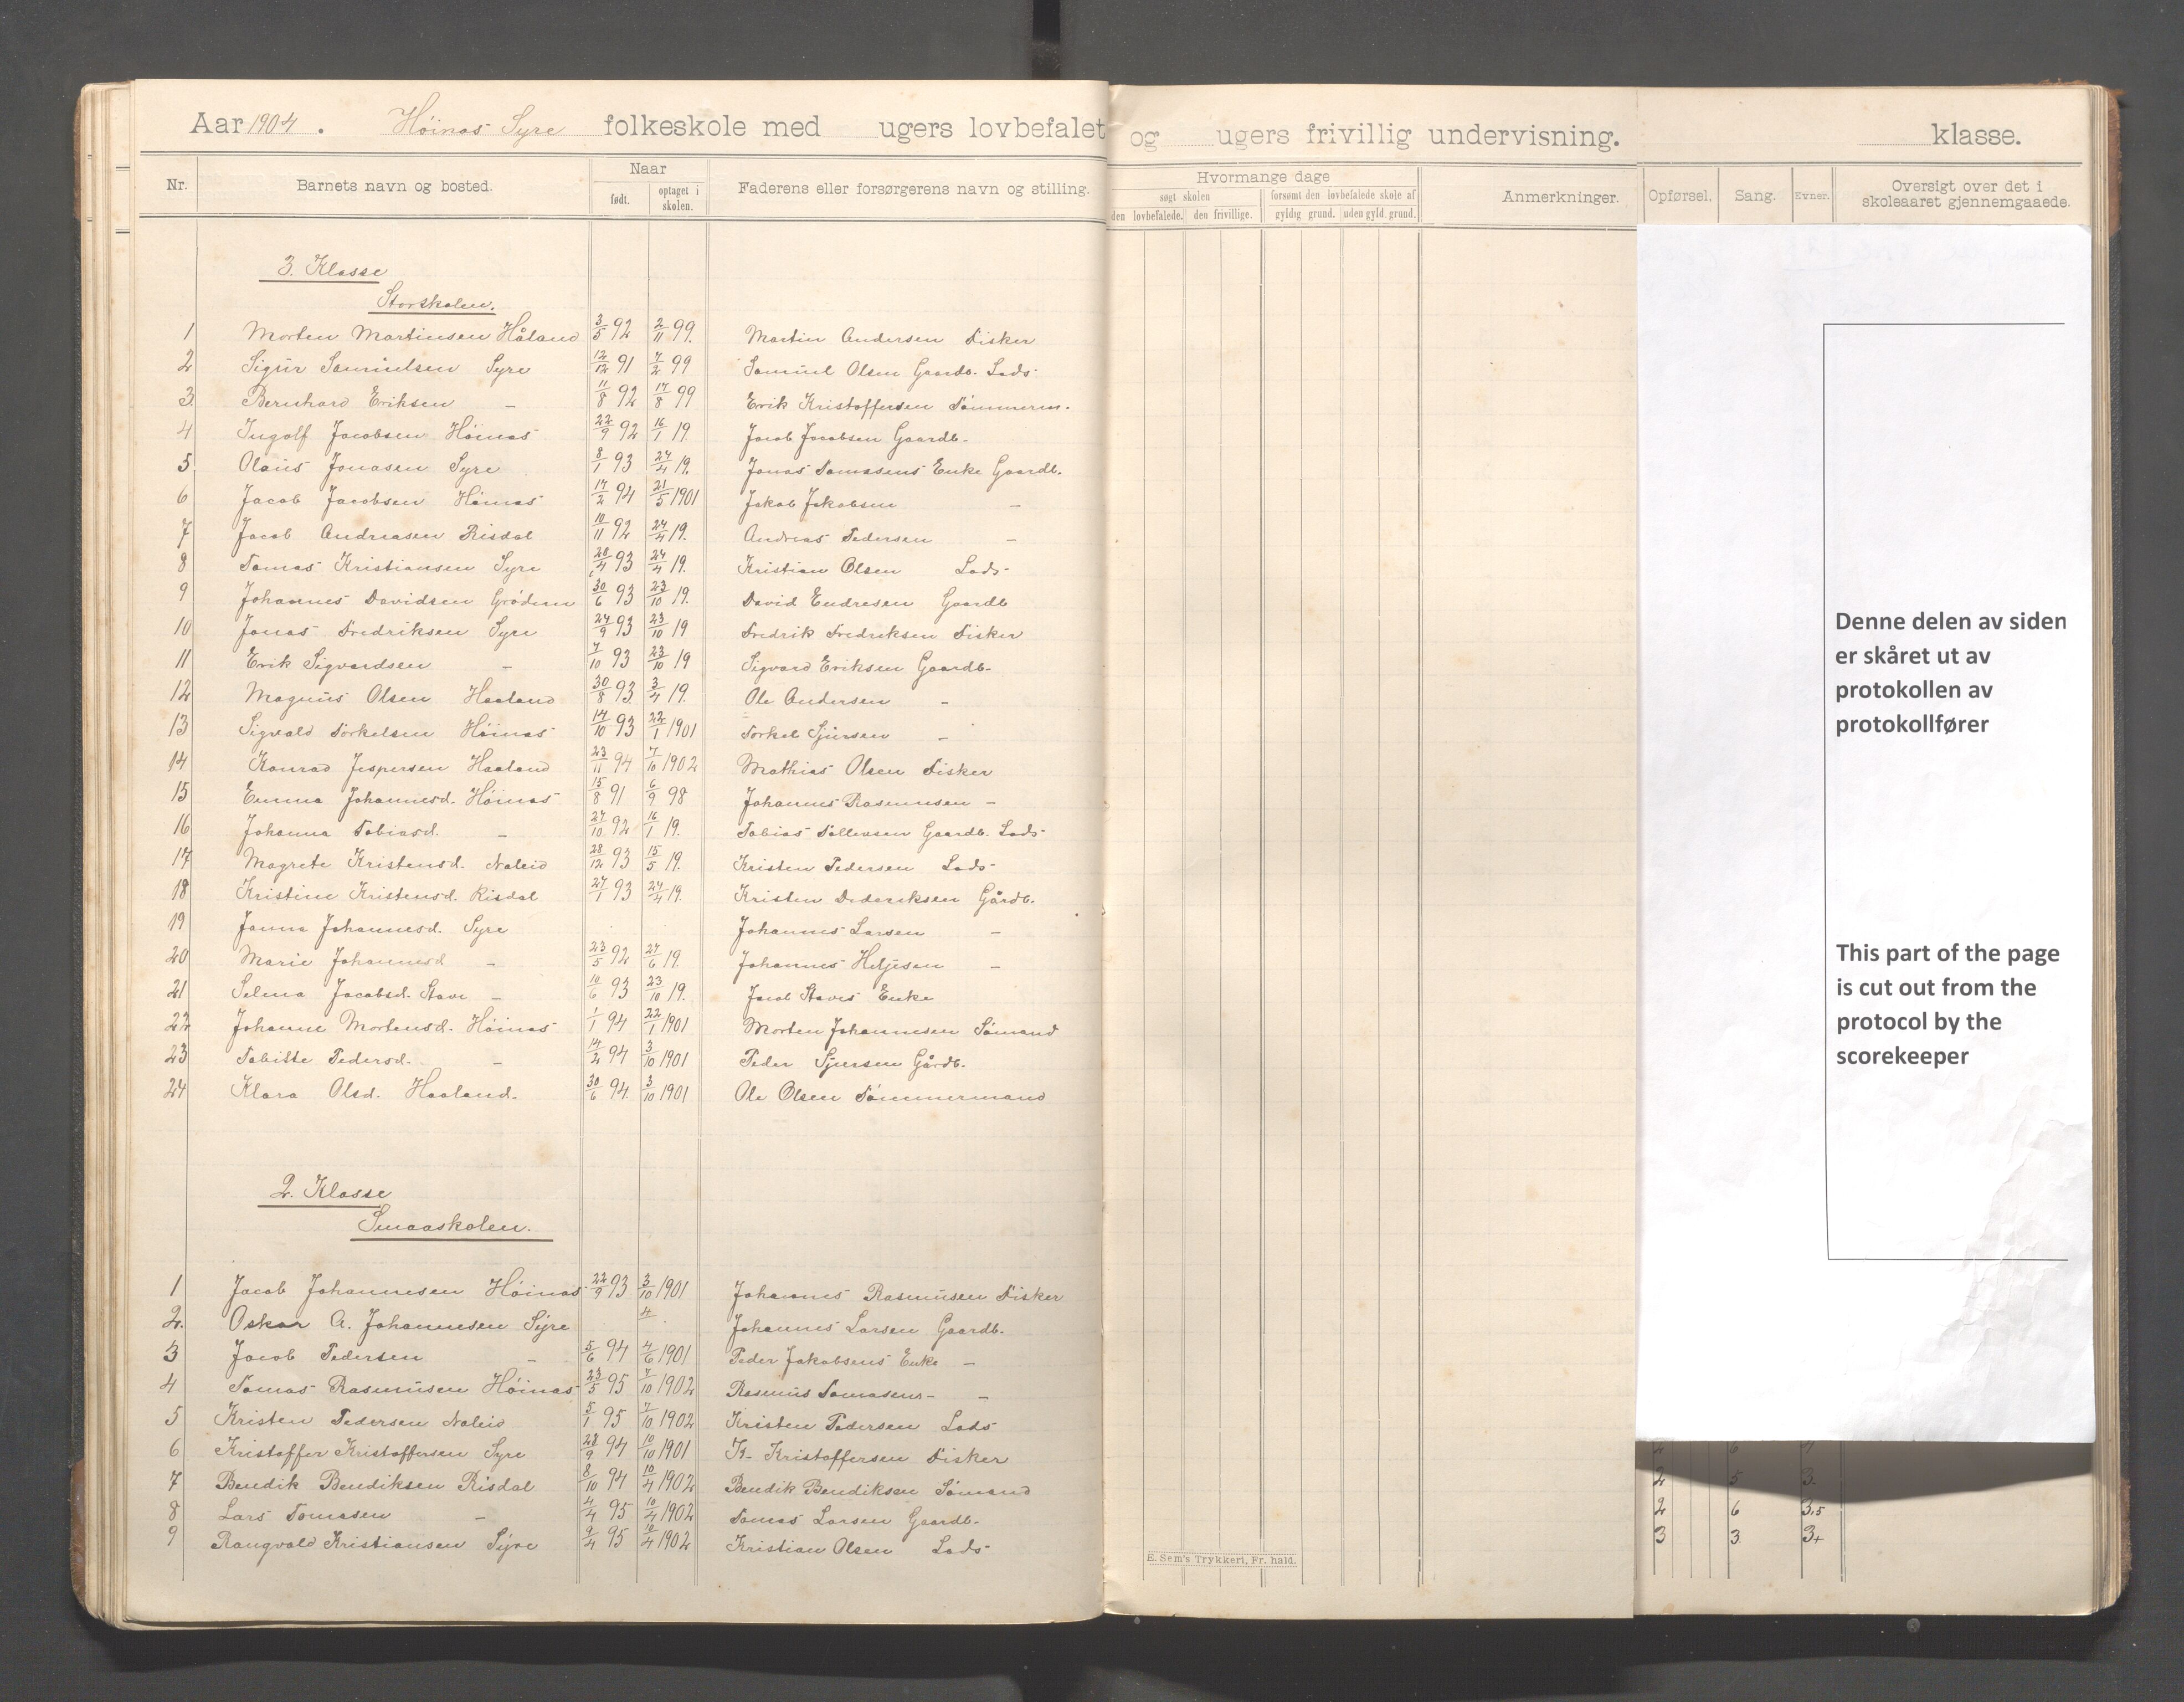 Aar 1904. Höinas Syre folkeskole med ugers lovbefalet og ugers frivillig undervisning. klasse.
Nr. Barnets navn og bosted. Naar født. optaget i skolen. Faderens eller forsørgerens navn og stilling. Hvormange dage søgt skolen den lovbefalede. den frivillige. forsømt den lovbefalede skole af gyldig grund. uden gyld. grund. Anmerkninger. Opførsel. Sang. Evner. Oversigt over det i skoleaaret gjennemgaaede.
3. Klasse
Storskolen.
1 Morten Martinsen Håland 3/5 92 2/11 99. Martin Andersen Fisker
2 Sigur Samuelsen Syre 12/12 91 7/2 99 Samuel Olsen Gaardb. Lods
3 Bernhard Eriksen – 11/8 92 17/8 99 Erik Kristoffersen Tömmerm.
4 Ingolf Jacobsen Höinas 22/9 92 16/1 19. Jacob Jacobsen Gaardb.
5 Olaus Jonasen Syre 8/1 93 24/4 19. Jonas Tomasens Enke Gaardb.
6 Jacob Jacobsen Höinas 17/2 94 21/5 1901 Jakob Jakobsen –
7 Jacob Andreasen Risdal 10/11 92 24/4 19. Andreas Pedersen –
8 Tomas Kristiansen Syre 20/4 93 24/4 19. Kristian Olsen Lods
9 Johannes Davidsen Grödem 30/6 93 23/10 19. David Endresen Gaardb
10 Jonas Fredriksen Syre 24/9 93 23/10 19 Fredrik Fredriksen Fisker
11 Erik Sigvardsen – 7/10 93 23/10 19 Sigvard Eriksen Gaardb.
12 Magnus Olsen Haaland 30/8 93 3/4 19. Ole Andersen –
13 Sigvald Torkelsen Höinas 14/10 93 22/1 1901 Torkel Sjursen –
14 Konrad Jespersen Haaland 23/11 94 7/10 1902 Mathias Olsen Fisker
15 Emma Johannesd. Höinas 15/8 91 6/9 98 Johannes Rasmusen –
16 Johanna Tobiasd. – 27/10 92 16/1 19. Tobias Tollevsen Gaardb. Lods
17 Magrete Kristensd. Naleid 28/12 93 15/5 19. Kristen Pedersen Lods
18 Kristine Kristensd. Risdal 27/1 93 24/4 19. Kristen Dideriksen Gårdb.
19 Janna Johannesd. Syre Johannes Larsen –
20 Marie Johannesd – 23/5 92 27/6 19. Johannes Helgesen –
21 Selma Jacobsd. Stave – 10/6 93 23/10 19. Jacob Staves Enke
22 Johanne Mortensd. Höinas 1/1 94 22/1 1901 Morten Johannesen Sömand
23 Tobitte Pedersd. – 14/2 94 3/10 1901 Peder Sjursen Gårdb.
24 Klara Olsd. Haaland. 30/6 94. 3/10 1901 Ole Olsen Tömmermand
2. Klasse
Smaaskolen.
1 Jacob Johannesen Höinas 22/9 93 3/10 1901 Johannes Rasmusen Fisker
2. Oskar A. Johannesen Syre 4/ Johannes Larsen Gaardb.
3 Jacob Pedersen – 5/6 94 4/6 1901 Peder Jakobsens Enke –
4 Tomas Rasmusen Höinas 23/5 95 7/10 1902 Rasmus Tomasens –
5 Kristen Pedersen Naleid 5/1 95 7/10 1902 Kristen Pedersen Lods
6 Kristoffer Kristoffersen Syre 28/9 94 10/10 1901 K. Kristoffersen Fisker
7 Bendik Bendiksen Risdal 8/10 94 10/4 1902 Bendik Bendiksen Sömand
2 5 3.
8 Lars Tomasen – 4/4 95 10/4 1902 Tomas Larsen Gaardb.
2 6 3,5
9 Rangvald Kristiansen Syre 9/4 95 10/4 1902 Kristian Olsen Lods
3 3. 3+
E. Sem's Trykkeri, Fr. hald.
Denne delen av siden
er skåret ut av
protokollen av
protokollfører
This part of the page
is cut out from the
protocol by the
scorekeeper